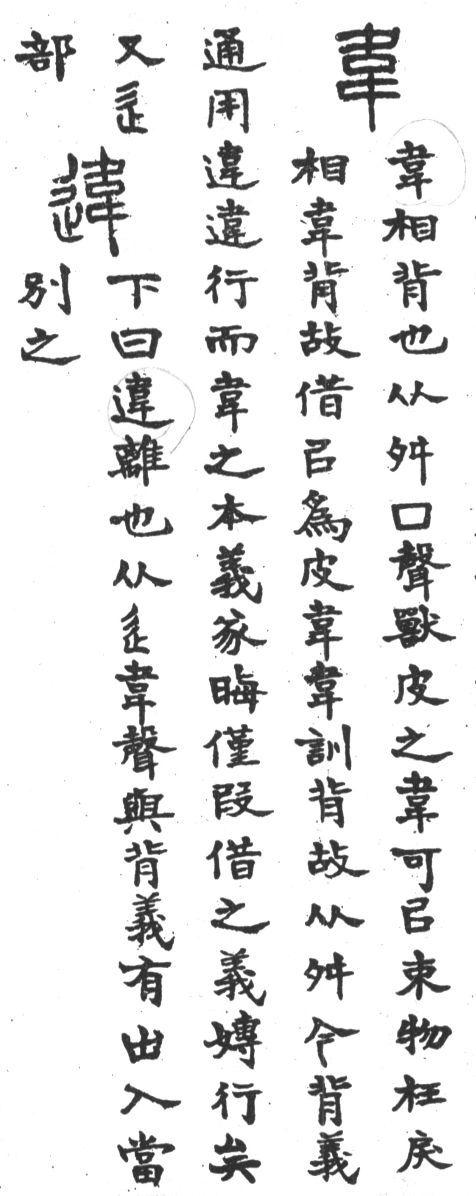 韋
韋相背也从舛口聲獸皮之韋可㠯束物枉戾
相韋背故借㠯爲皮韋韋訓背故从舛今背義
通用違違行而韋之本義遂晦僅叚借之義嫥行矣
又辵
違
下曰違離也从辵韋聲與背義有出入當
部
別之